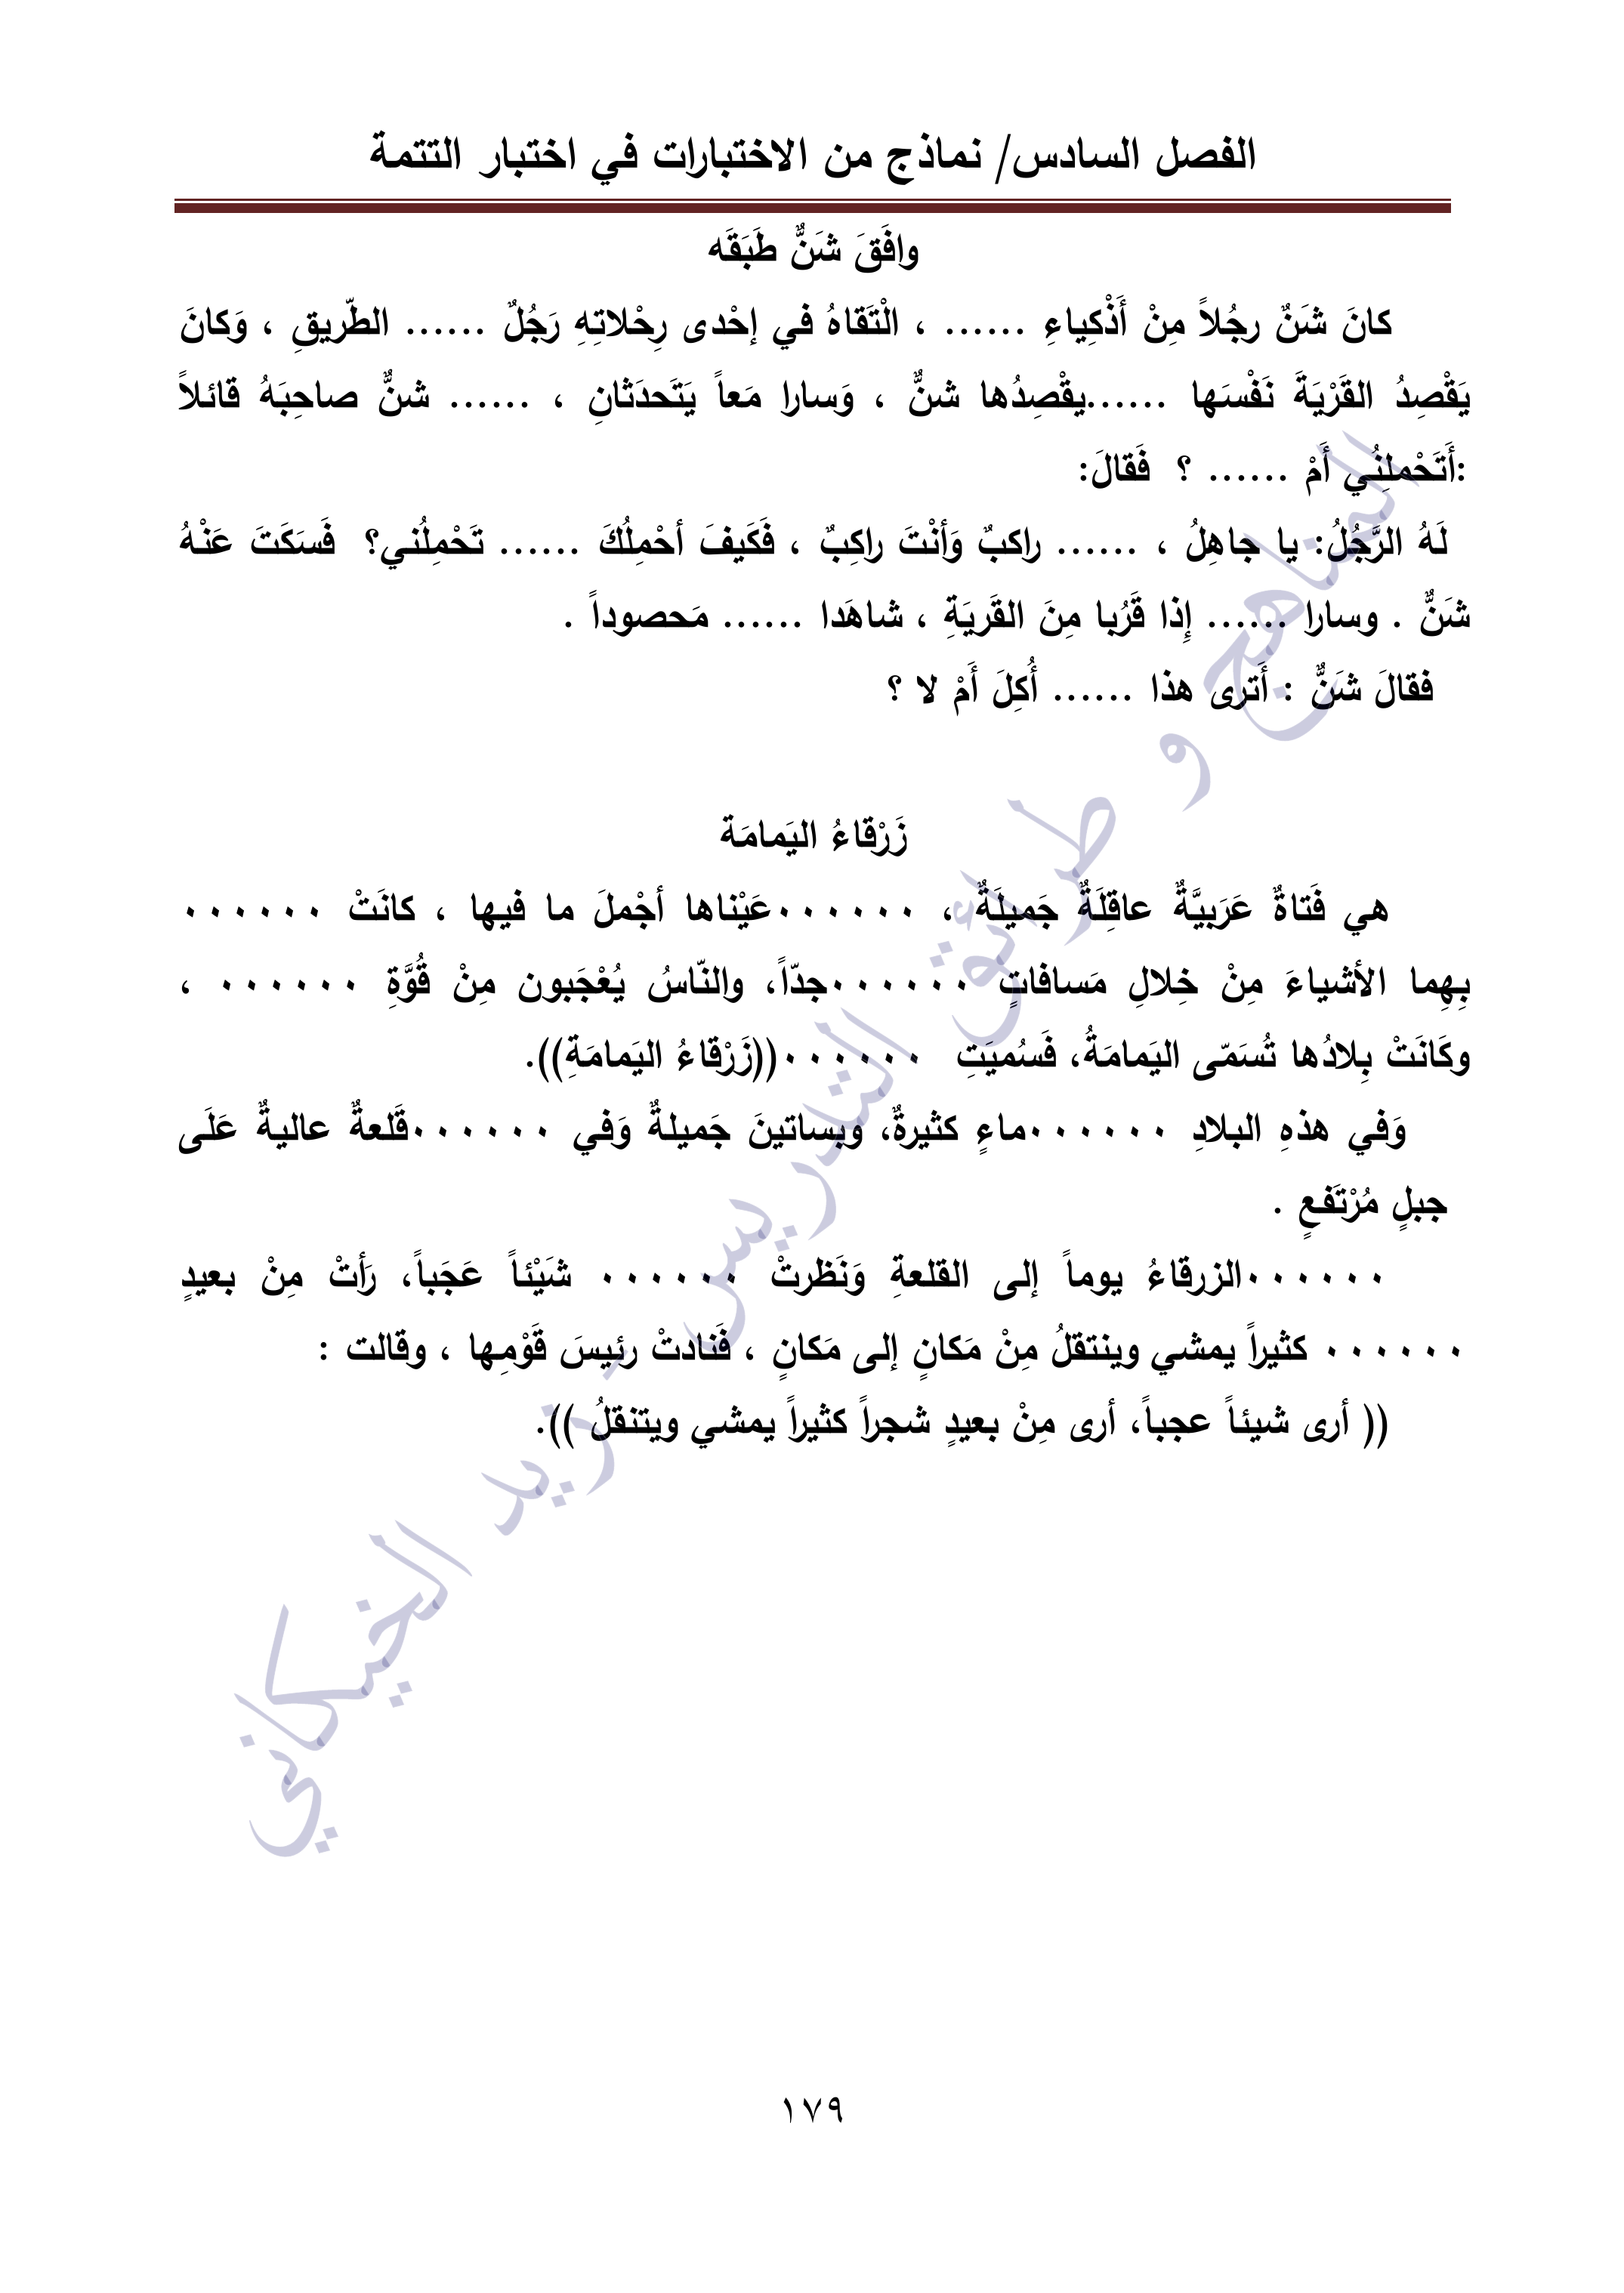 الفصل السادس/ نماذج من الاختبارات في اختبار التتمة
وافَقَ شَنٌّ طَبَقَه
كانَ شَنٌ رجُلاً مِنْ أَذْكِياءِ ...... ، الْتَقاهُ في إحْدى رِحْلاتِهِ رَجُلٌ ...... الطّريقِ ، وَكانَ
يَقْصِدُ القَرْيَةَ نَفْسَها ......يقْصِدُها شنٌّ ، وَسارا مَعاً يَتَحدَثانِ ، ...... شنٌّ صاحِبَهُ قائلاً
:أَتَحْملِنُي أَمْ ...... ؟ فَقالَ:
لَهُ الرَّجُلُ: يا جاهِلُ ، ...... راكبٌ وَأنْتَ راكِبٌ ، فَكَيفَ أحْمِلُكَ ...... تَحْمِلُني؟ فَسَكَتَ عَنْهُ
شَنٌّ . وسارا ...... إِذا قَرُبا مِنَ القَريَةِ ، شاهَدا ...... مَحصوداً .
فقالَ شَنٌّ : أَترى هذا ...... أُكِلَ أَمْ لا ؟
زَرْقاءُ اليَمامَة
هي فَتاةٌ عَرَبيَّةٌ عاقِلَةٌ جَميلَةٌ ، ٠٠٠٠٠٠عَيْناها أجْملَ ما فيها ، كانَتْ ٠٠٠٠٠٠
بِهِما الأشياءَ مِنْ خِلالِ مَسافاتٍ ٠٠٠٠٠٠جدّاً، والنّاسُ يُعْجَبون مِنْ قُوَّةِ ٠٠٠٠٠٠ ،
وكَانَتْ بِلادُها تُسَمّى اليَمامَةُ، فَسُميَتِ ٠٠٠٠٠٠((زَرْقاءُ اليَمامَةِ)).
وَفي هذهِ البلادِ ٠٠٠٠٠٠ماءٍ كثيرةٌ، وبساتينَ جَميلةٌ وَفي ٠٠٠٠٠٠قَلعةٌ عاليةٌ عَلَى
جبلٍ مُرْتَفعٍ .
٠٠٠٠٠٠الزرقاءُ يوماً إلى القلعةِ وَنَظرتْ ٠٠٠٠٠٠ شَيْئاً عَجَباً، رَأتْ مِنْ بعيدٍ
٠٠٠٠٠٠ كثيراً يمشي وينتقلُ مِنْ مَكانٍ إلى مَكانٍ ، فَنادتْ رئيسَ قَوْمِها ، وقالت :
(( أرى شيئاً عجباً، أرى مِنْ بعيدٍ شجراً كثيراً يمشي ويتنقلُ )).
المناهج و طرائق التدريس - زيد الخيكاني
١٧٩